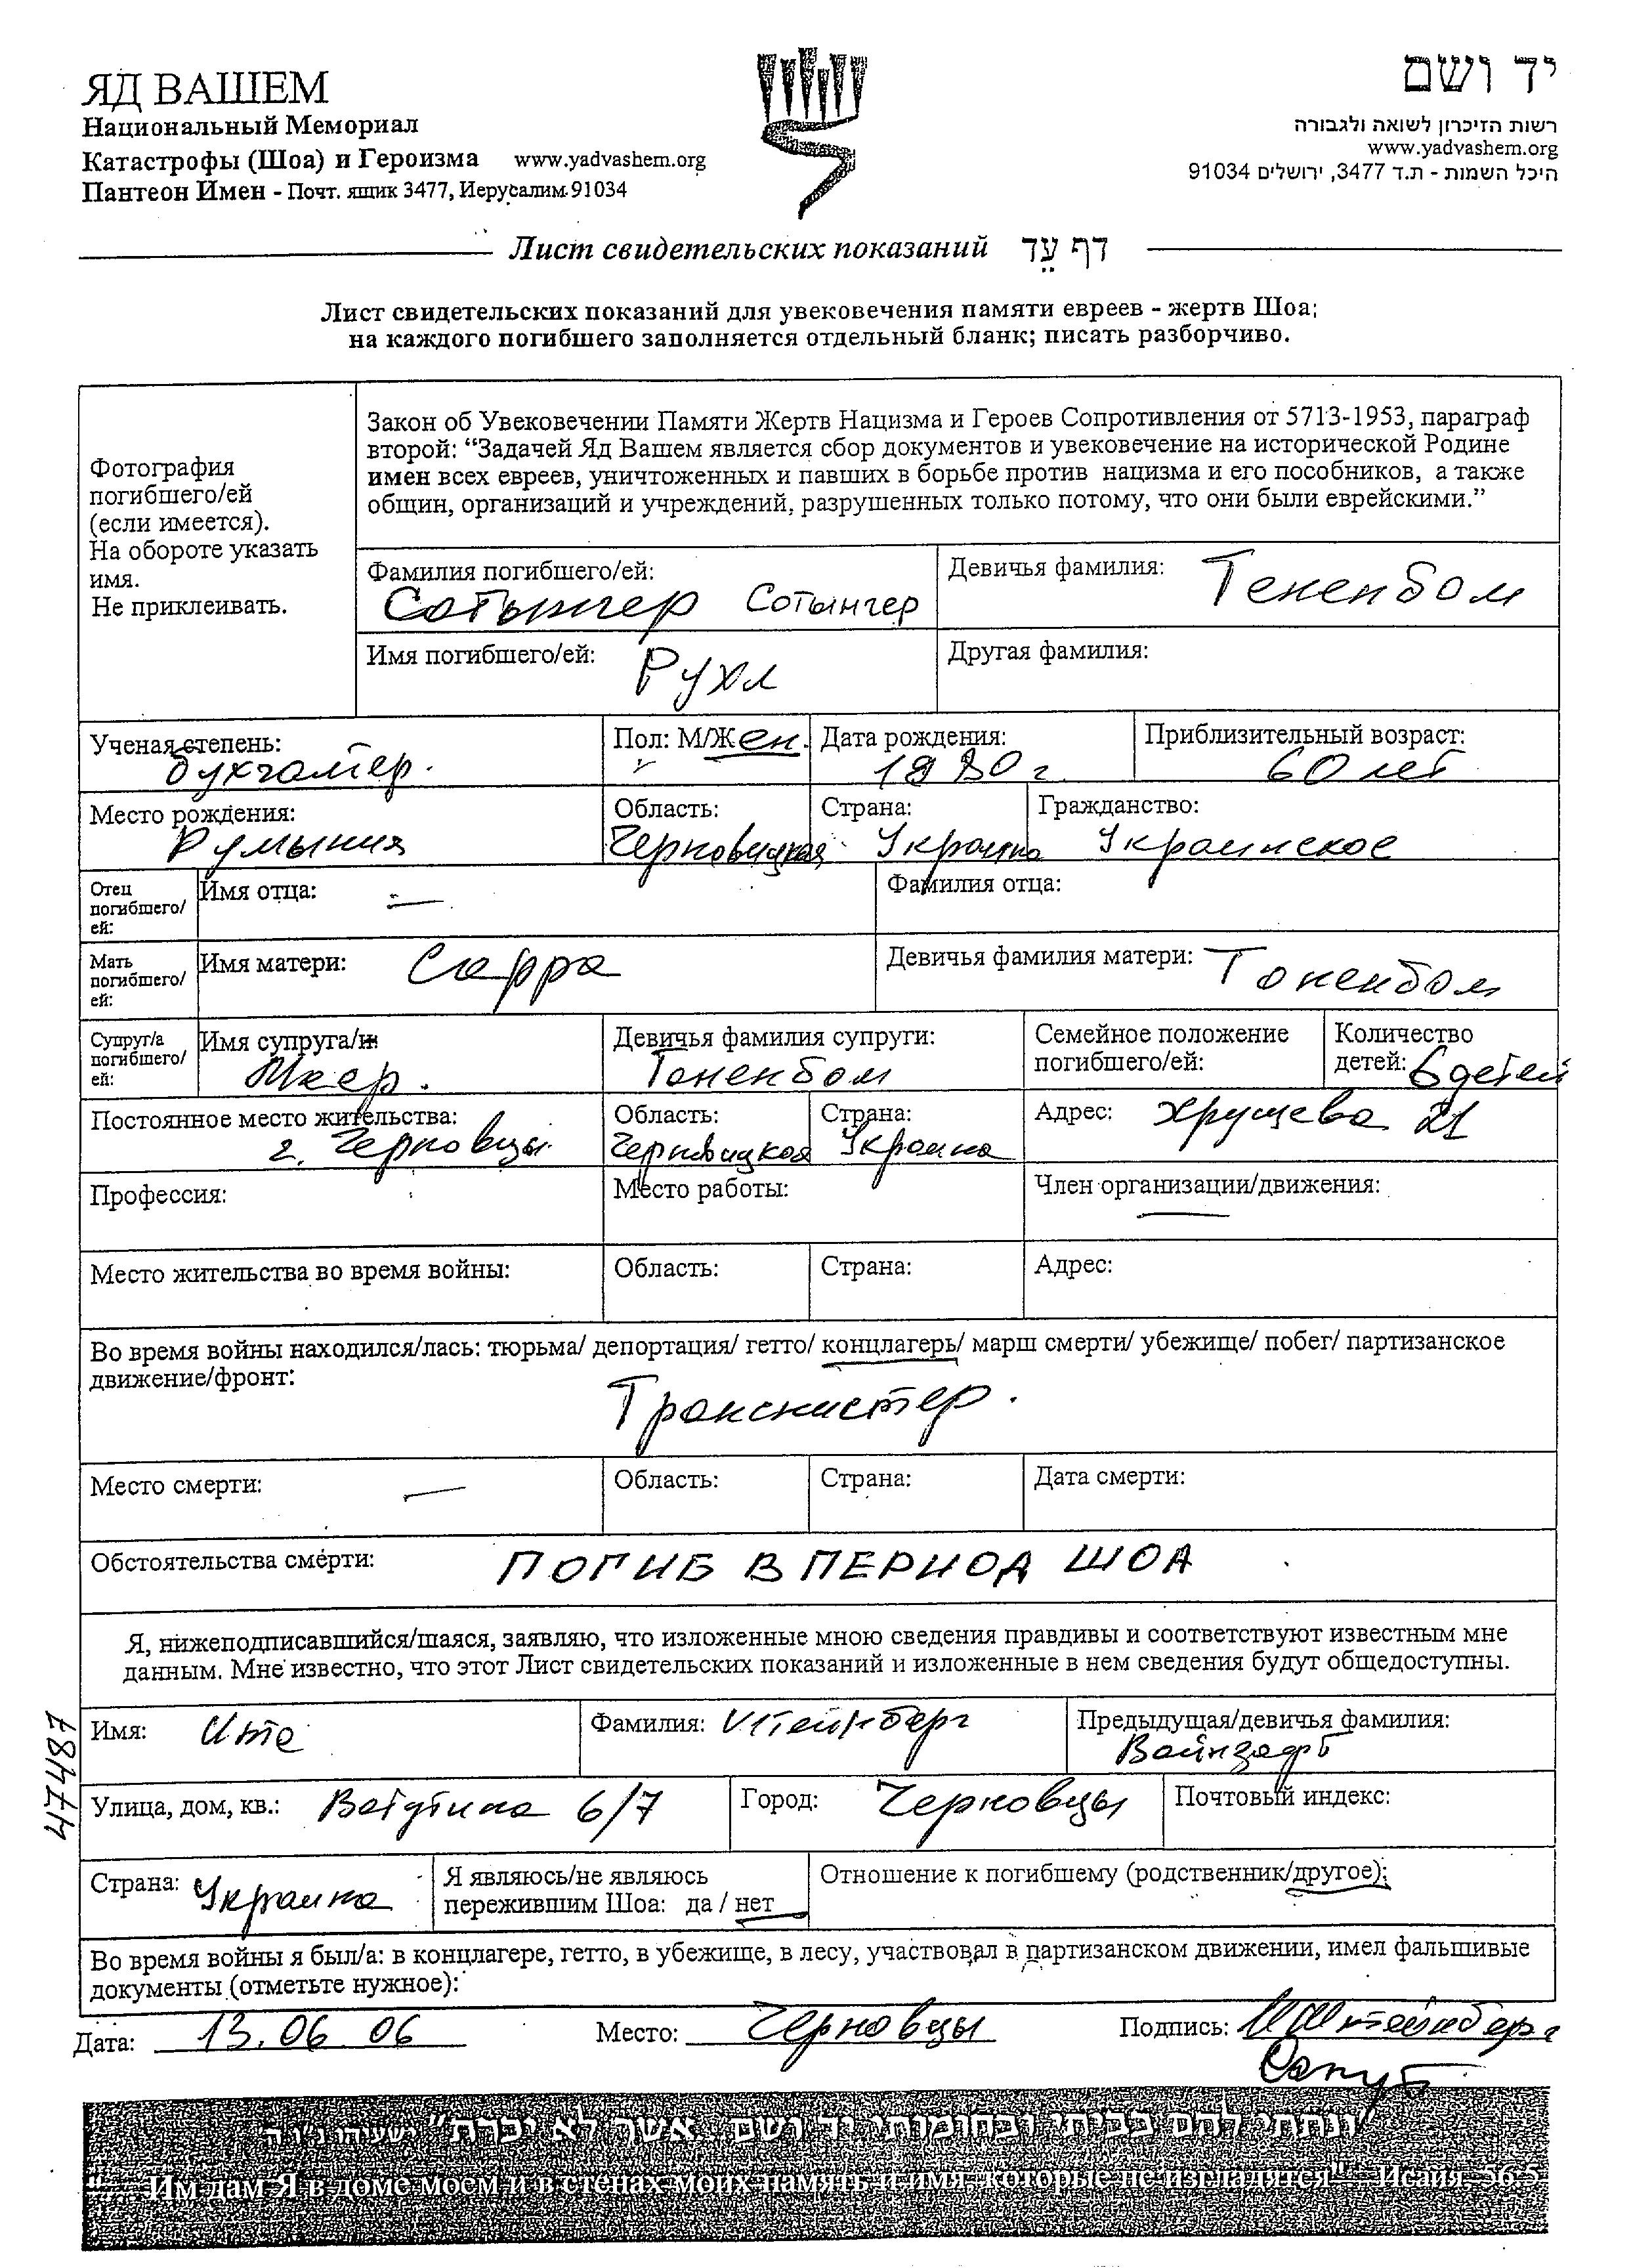 ЯД ВАШЕМ
Национальный Мемориал
Катастрофы (Шоа) и Героизма www.yadvashem.org
Пантеон Имен - Почт. ящик 3477, Иерусалим 91034
יד ושם
רשות הזיכרון לשואה ולגבורה
www.yadvashem.org
היכל השמות - ת.ד 3477, ירושלים 91034
Лист свидетельских показаний דף עֵד
Лист свидетельских показаний для увековечения памяти евреев - жертв Шоа;
на каждого погибшего заполняется отдельный бланк; писать разборчиво.
Фотография
погибшего/ей
(если имеется).
На обороте указать
имя.
Не приклеивать.
Закон об Увековечении Памяти Жертв Нацизма и Героев Сопротивления от 5713-1953, параграф
второй: “Задачей Яд Вашем является сбор документов и увековечение на исторической Родине
имен всех евреев, уничтоженных и павших в борьбе против нацизма и его пособников, а также
общин, организаций и учреждений, разрушенных только потому, что они были еврейскими.”
Фамилия погибшего/ей: Сотынгер Сотынгер
Девичья фамилия: Тененбом
Имя погибшего/ей: Рухл
Другая фамилия:
Ученая степень: бухгалтер.
Пол: М/Жен.
Дата рождения:
Приблизительный возраст: 60 лет
Место рождения: Румыния
Область: Черновицкая
Страна: Украина
Гражданство: Украинское
Отец
погибшего/
ей:
Имя отца: —
Фамилия отца:
Мать
погибшего/
ей:
Имя матери: Сарра
Девичья фамилия матери: Тоненбом
Супруг/а
погибшего/
ей:
Имя супруга/и
Девичья фамилия супруги: Тененбом
Семейное положение
погибшего/ей:
Количество
детей: 6 детей
Постоянное место жительства: г. Черновцы
Область: Черновицкая
Страна: Украина
Адрес: Хрущева 21
Профессия:
Место работы:
Член организации/движения:
Место жительства во время войны:
Область:
Страна:
Адрес:
Во время войны находился/лась: тюрьма/ депортация/ гетто/ концлагерь/ марш смерти/ убежище/ побег/ партизанское
движение/фронт:
Транснистер.
Место смерти: —
Область:
Страна:
Дата смерти:
Обстоятельства смерти: ПОГИБ В ПЕРИОД ШОА
Я, нижеподписавшийся/шаяся, заявляю, что изложенные мною сведения правдивы и соответствуют известным мне
данным. Мне известно, что этот Лист свидетельских показаний и изложенные в нем сведения будут общедоступны.
Имя: Ита
Фамилия: Штейнберг
Предыдущая/девичья фамилия:
Вайнзафт
Улица, дом, кв.: Ватутина 6/7
Город: Черновцы
Почтовый индекс:
Страна: Украина
Я являюсь/не являюсь
пережившим Шоа: да / нет
Отношение к погибшему (родственник/другое):
Во время войны я был/а: в концлагере, гетто, в убежище, в лесу, участвовал в партизанском движении, имел фальшивые
документы (отметьте нужное):
Дата: 13.06 06
Место: Черновцы
Подпись: ИШтейнберг
474187
"ונתתי להם בביתי ובחומותי יד ושם...אשר לא יכרת" ישעיהו נו ה
"...Им дам Я в доме моем и в стенах моих память и имя, которые не изгладятся" Исайя, 56:5